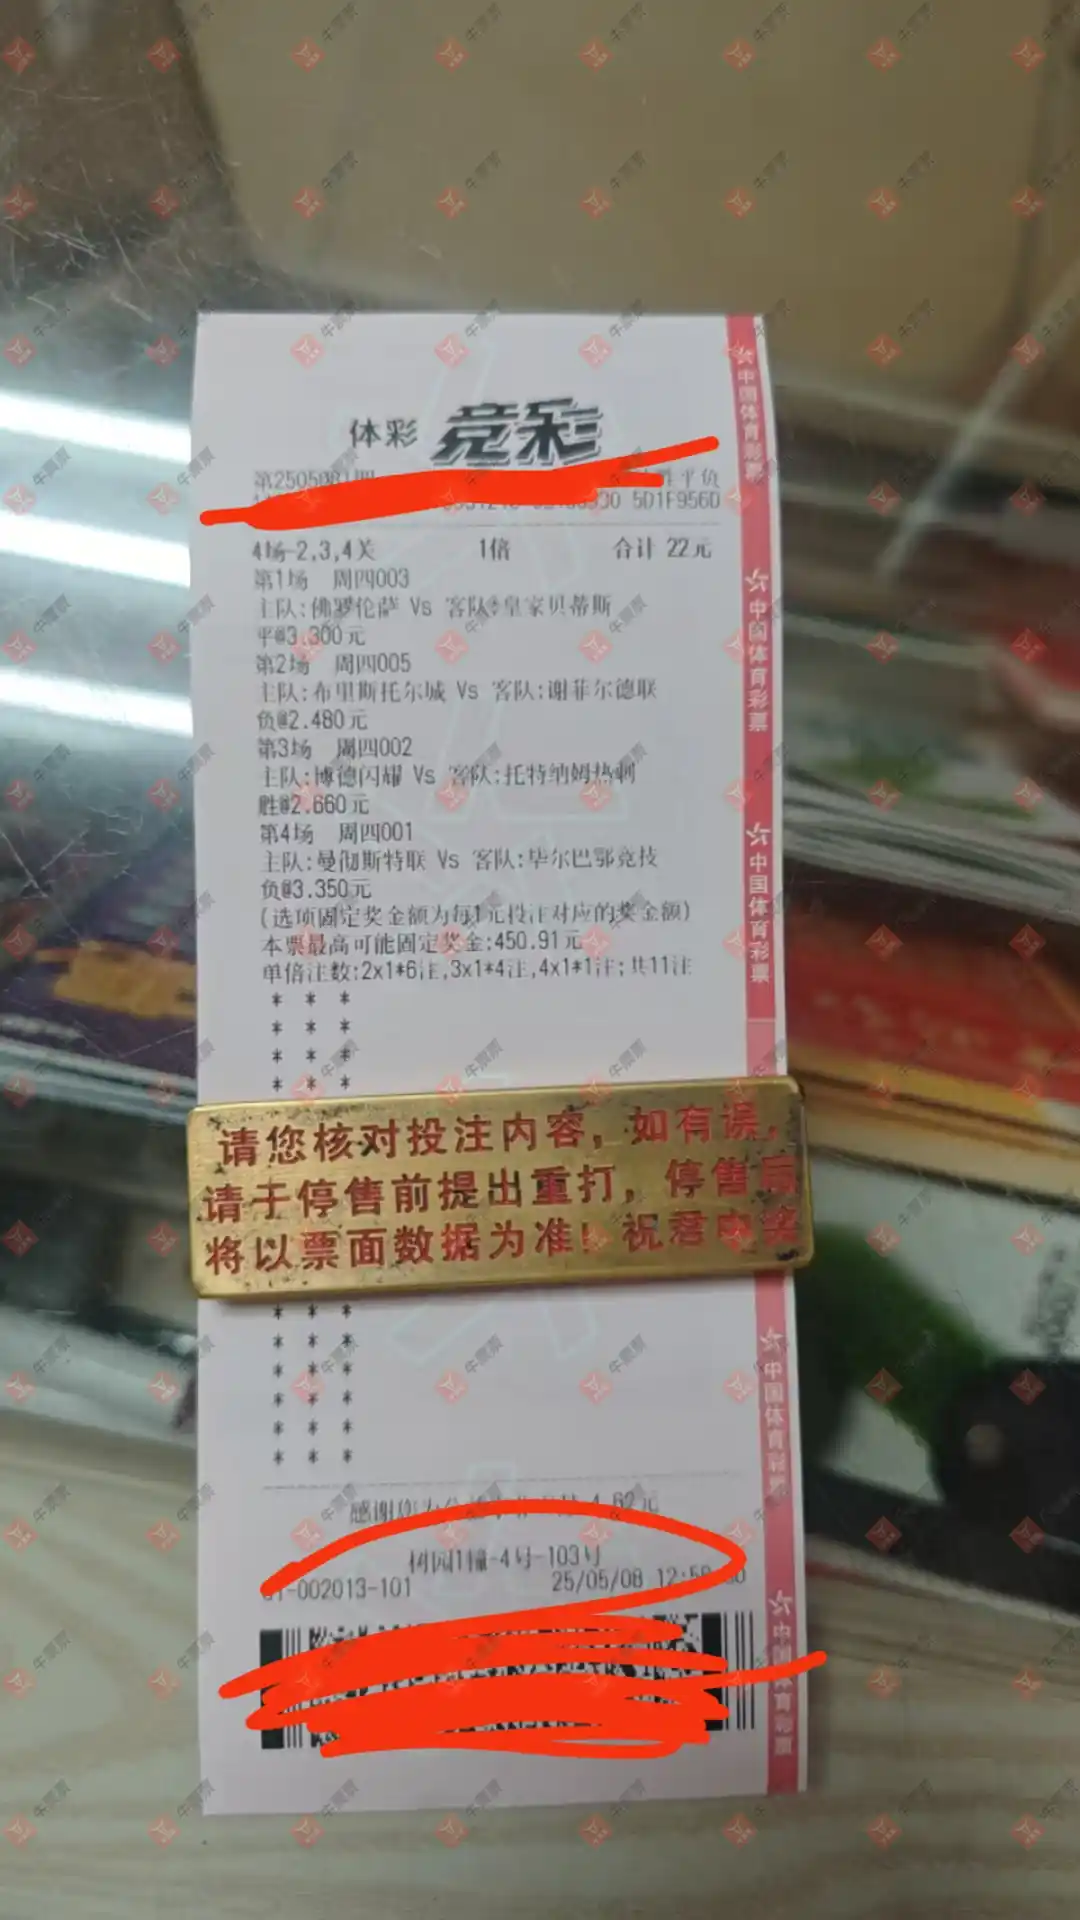 体彩 竞彩
5D1F956D
4场-2,3,4关 1倍 合计 22元
第1场 周四003
主队:佛罗伦萨 Vs 客队:皇家贝蒂斯
平@3.300元
第2场 周四005
主队:布里斯托尔城 Vs 客队:谢菲尔德联
负@2.480元
第3场 周四002
主队:博德闪耀 Vs 客队:托特纳姆热刺
胜@2.660元
第4场 周四001
主队:曼彻斯特联 Vs 客队:毕尔巴鄂竞技
负@3.350元
(选项固定奖金额为每1元投注对应的奖金额)
本票最高可能固定奖金:450.91元
单倍注数:2x1*6注,3x1*4注,4x1*1注;共11注
* * *
* * *
* * *
* * *
请您核对投注内容，如有误，
请于停售前提出重打，停售后
将以票面数据为准！祝君中奖
* * *
* * *
* * *
* * *
* * *
* * *
感谢您为公益 4.62元
1幢-4号-103号
002013-101 25/05/08
中国体育彩票
中国体育彩票
中国体育彩票
中国体育彩票
中国体育彩票
牛票票